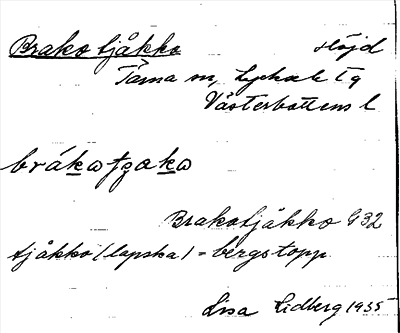 Brakotjåkko Höjd
Tärna sn, Lycksele tg
Västerbottens l
brákatjzaka
Brakotjåkko G32
tjåkko (lapska) = bergstopp
Lisa Lidberg 1935